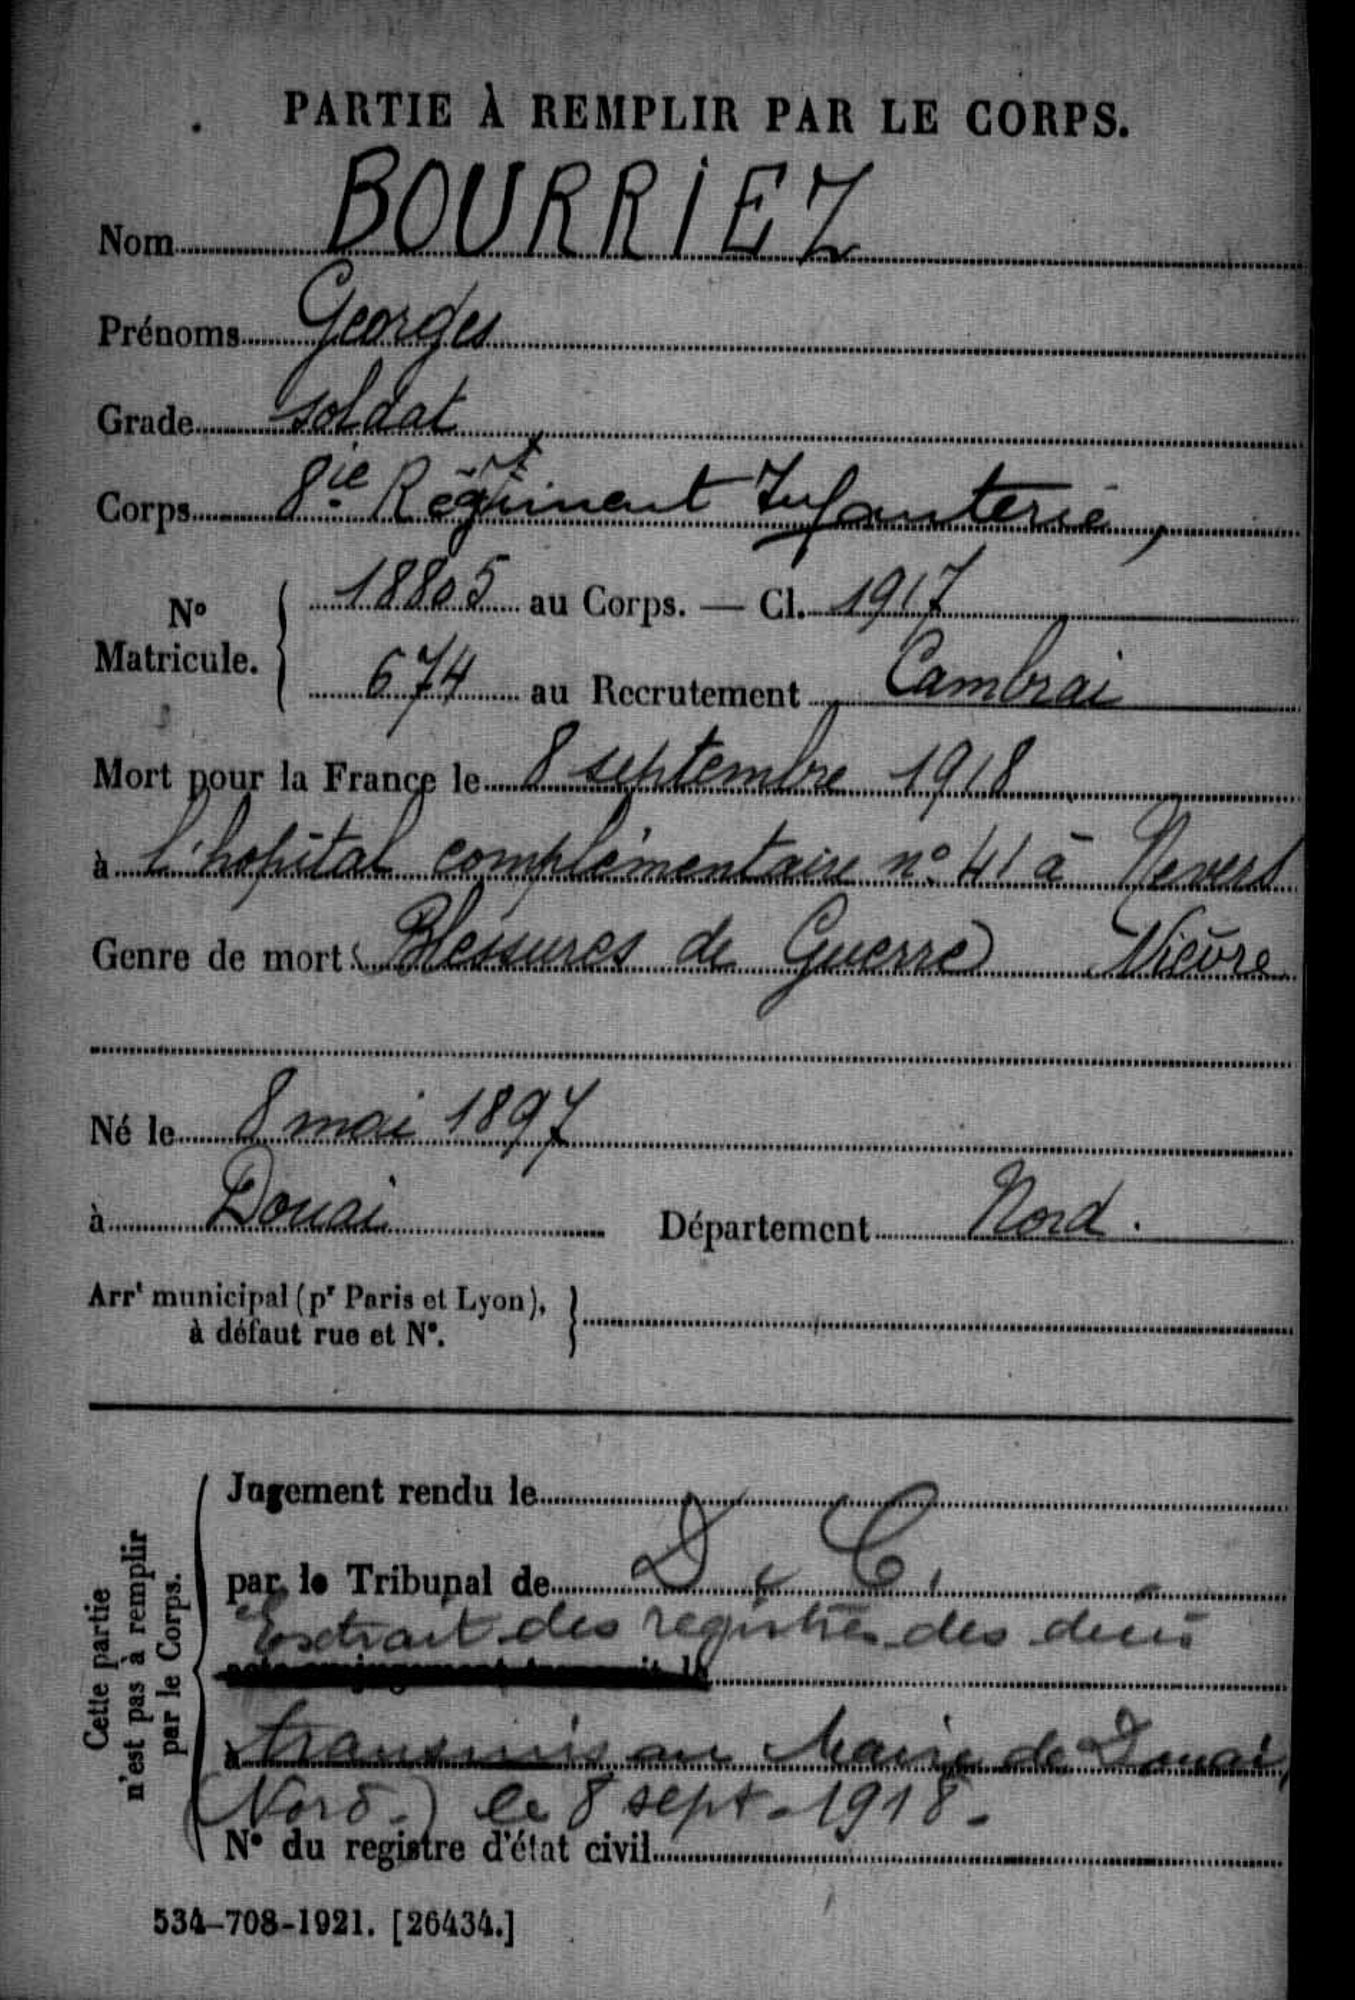 PARTIE À REMPLIR PAR LE CORPS.
Nom BOURRIEZ
Prénoms Georges
Grade soldat
Corps 8ie Régiment Infanterie,
N° Matricule. { 18805 au Corps. — Cl. 1917
674 au Recrutement Cambrai
Mort pour la France le 8 septembre 1918
à l'hopital complémentaire n° 41 à Nevers
Genre de mort Blessures de Guerre Nièvre
Né le 8 mai 1897
à Douai Département Nord.
Arrt municipal (pr Paris et Lyon),
à défaut rue et N°.
Cette partie
n'est pas à remplir
par le Corps.
Jugement rendu le
par le Tribunal de D. C.
Extrait des registres des décès
à transmis au Maire de Douai,
(Nord.) le 8 sept. 1918.
N° du registre d'état civil
534-708-1921. [26434.]